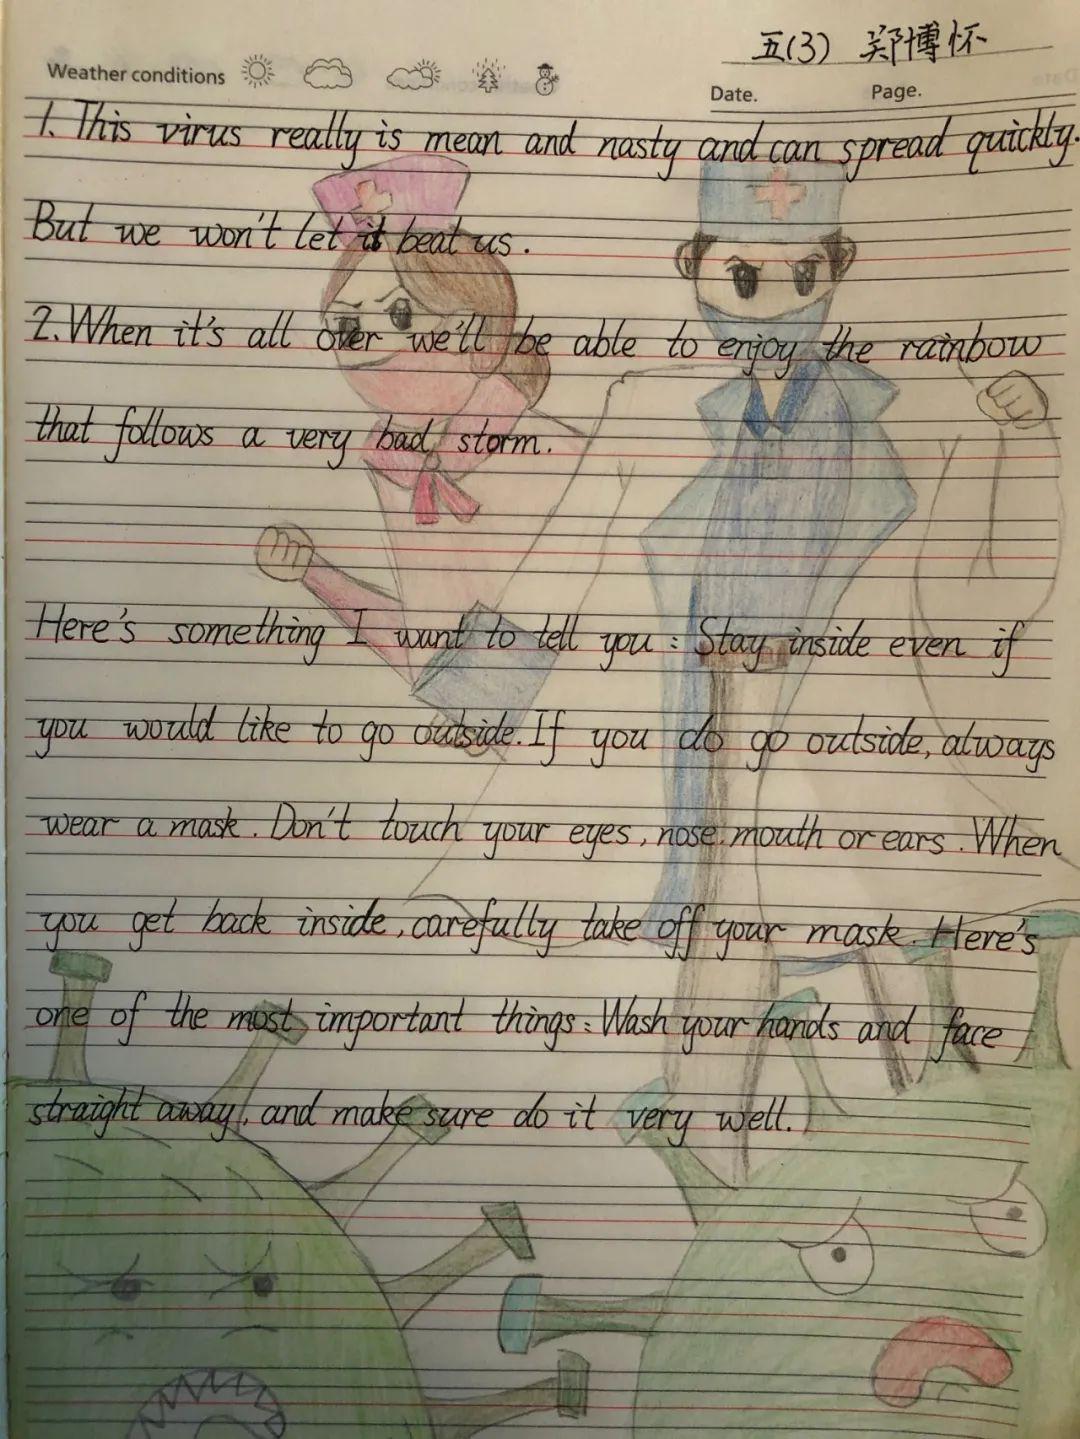 五(3) 郑博怀
Weather conditions
Date. Page.
1. This virus really is mean and nasty and can spread quickly.
But we won't let it beat us.
2. When it's all over we'll be able to enjoy the rainbow
that follows a very bad storm.
Here's something I want to tell you: Stay inside even if
you would like to go outside. If you do go outside, always
wear a mask. Don't touch your eyes, nose. mouth or ears. When
you get back inside, carefully take off your mask. Here's
one of the most important things: Wash your hands and face
straight away!, and make sure do it very well.